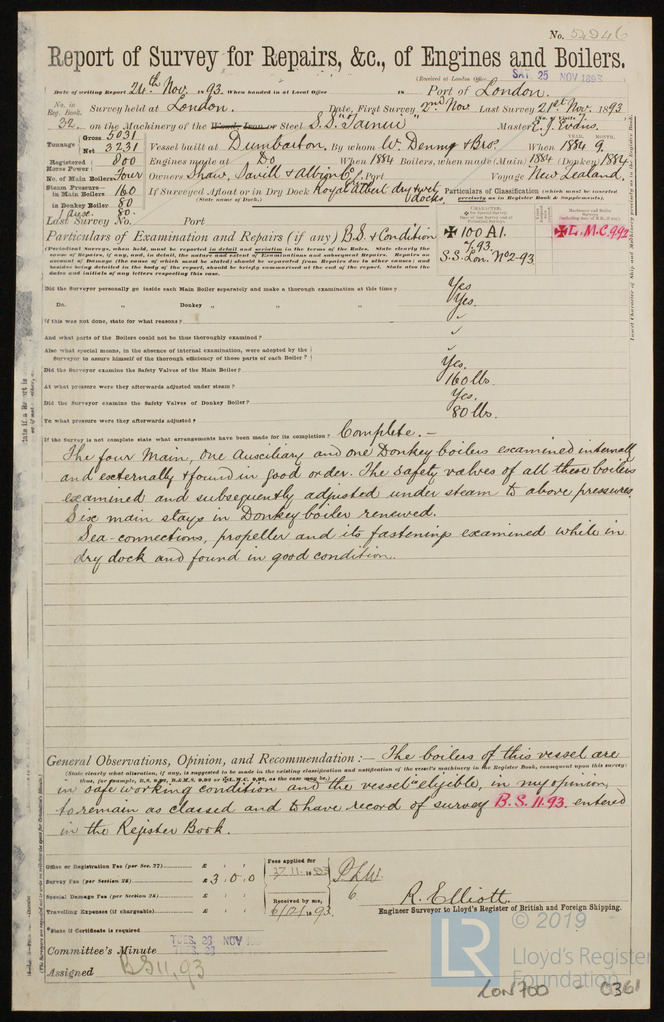 No. 52246
Report of Survey for Repairs, &c., of Engines and Boilers.
(Received at London Office SAT 25 NOV 1893
Date of writing Report 24th Nov. 1893. When handed in at Local Office 18 Port of London.
No. in Reg. Book. Survey held at London. Date, First Survey 2nd Nov Last Survey 21st Nov. 1893
32. on the Machinery of the Wood, Iron or Steel S.S. "Tainui" Master E. J. Evans.
Tonnage Gross 5031 Net 3231 Vessel built at Dumbarton. By whom W. Denny & Bros. When 1884 9.
Registered Horse Power 800 Engines made at Do When 1884 Boilers, when made (Main) 1884 (Donkey) 1884
No. of Main Boilers Four Owners Shaw, Savill & Albion Co. Port Voyage New Zealand.
Steam Pressure— in Main Boilers 160 If Surveyed Afloat or in Dry Dock Royal Albert dry & wet docks.
(State name of Dock.)
Particulars of Classification (which must be inserted precisely as in Register Book & Supplements).
in Donkey Boiler 80
1 Auxe. 80.
Last Survey No. Port
Particulars of Examination and Repairs (if any) B.S. & Condition
✠ 100 A1.
S.S. Lon. No 2-93
✠ L.M.C. 9,92
(Periodical Surveys, when held, must be reported in detail and seriatim in the terms of the Rules. State clearly the
cause of Repairs, if any, and, in detail, the nature and extent of Examinations and subsequent Repairs. Repairs on
account of Damage (the cause of which must be stated) should be separated from Repairs due to other causes; and
besides being detailed in the body of the report, should be briefly summarised at the end of the report. State also the
dates and initials of any letters respecting this case.)
Did the Surveyor personally go inside each Main Boiler separately and make a thorough examination at this time? Yes
Do. „ Donkey „ „ „ Yes.
If this was not done, state for what reasons? ✓
And what parts of the Boilers could not be thus thoroughly examined? ✓
Also what special means, in the absence of internal examination, were adopted by the
Surveyor to assure himself of the thorough efficiency of those parts of each Boiler? ✓
Did the Surveyor examine the Safety Valves of the Main Boiler? Yes.
At what pressure were they afterwards adjusted under steam? 160 lbs.
Did the Surveyor examine the Safety Valves of Donkey Boiler? Yes.
To what pressure were they afterwards adjusted? 80 lbs.
If the Survey is not complete state what arrangements have been made for its completion? Complete. —
The four Main, one Auxiliary and one Donkey boilers examined internally
and externally & found in good order. The safety valves of all these boilers
examined and subsequently adjusted under steam to above pressures.
Six main stays in Donkey boiler renewed.
Sea-connections, propeller and its fastenings examined while in
dry dock and found in good condition.
General Observations, Opinion, and Recommendation:— The boilers of this vessel are
(State clearly what alteration, if any, is suggested to be made in the existing classification and notification of the vessel's machinery in the Register Book, consequent upon this survey;
thus, for example, B.S. 9,92, B.&M.S. 9,92 or ✠L.M.C. 9,92, as the case may be.)
in safe working condition and the vessel eligible, in my opinion,
to remain as classed and to have record of survey B.S. 11.93 entered
in the Register Book.
Office or Registration Fee (per Sec. 27) £ : :
Survey Fee (per Section 28) £ 3 : 0 : 0
Special Damage Fee (per Section 28) £ : :
Travelling Expenses (if chargeable) £ : :
Fees applied for
Received by me,
R. Elliott
Engineer Surveyor to Lloyd's Register of British and Foreign Shipping.
*State if Certificate is required
Committee's Minute TUES. 28 NOV 1893
Assigned BS 11,93
© 2019
LR
Lloyd's Register
Foundation
LON700 - 0361